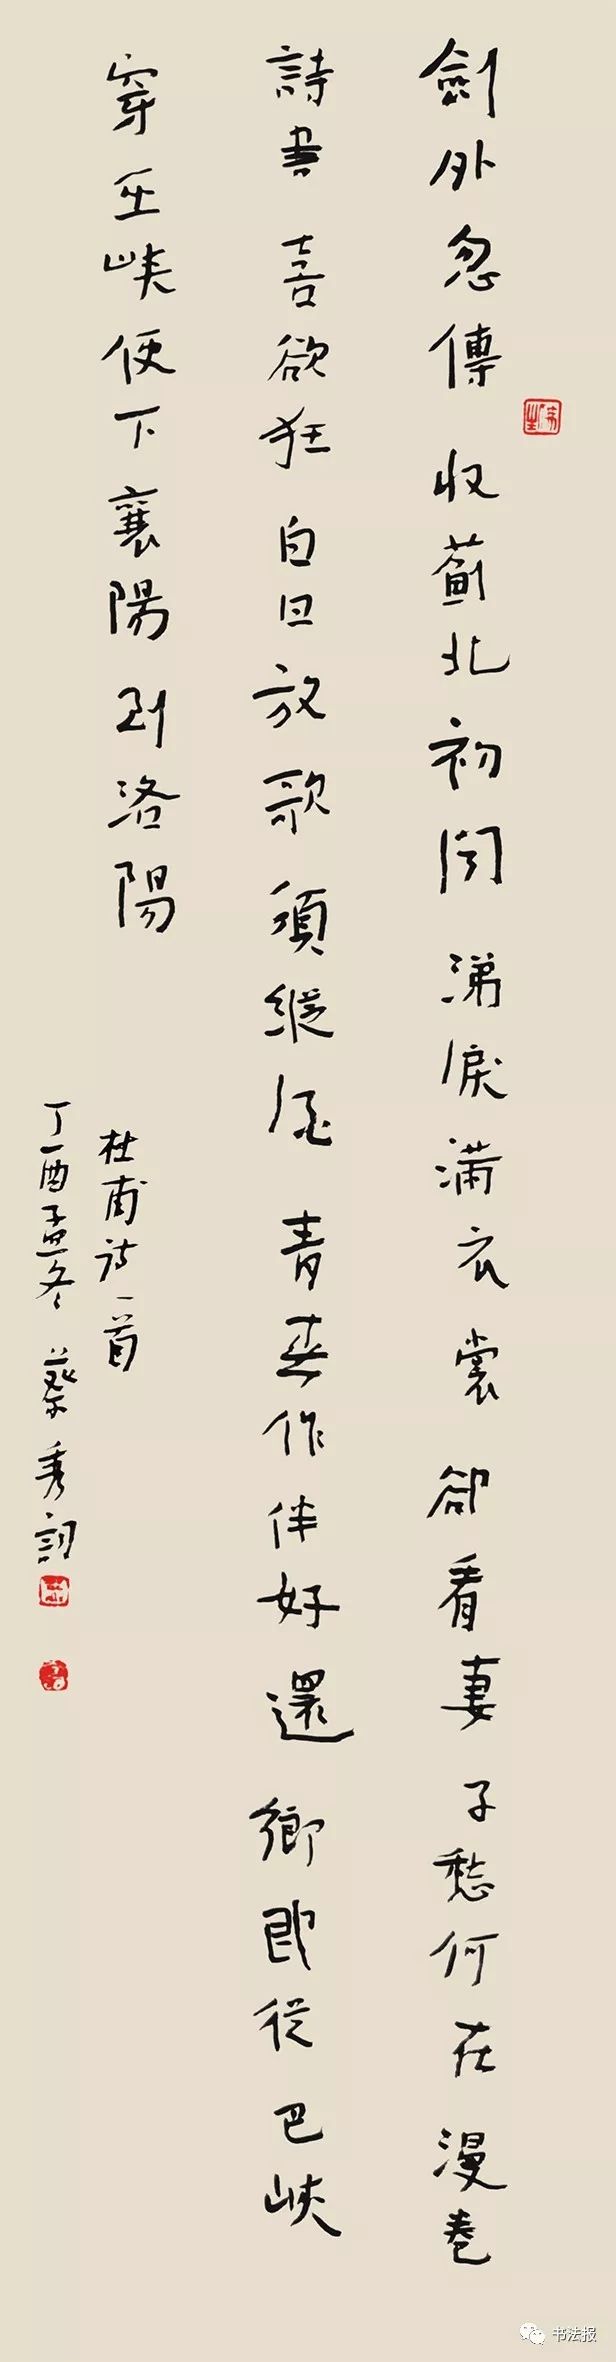 劍外忽傳収薊北初聞涕淚滿衣裳卻看妻子愁何在漫卷
詩書喜欲狂白日放歌須縱酒青春作伴好還鄉即從巴峽
穿巫峽便下襄陽到洛陽
杜甫詩一首
丁酉孟冬 蔡秀詞
书法报